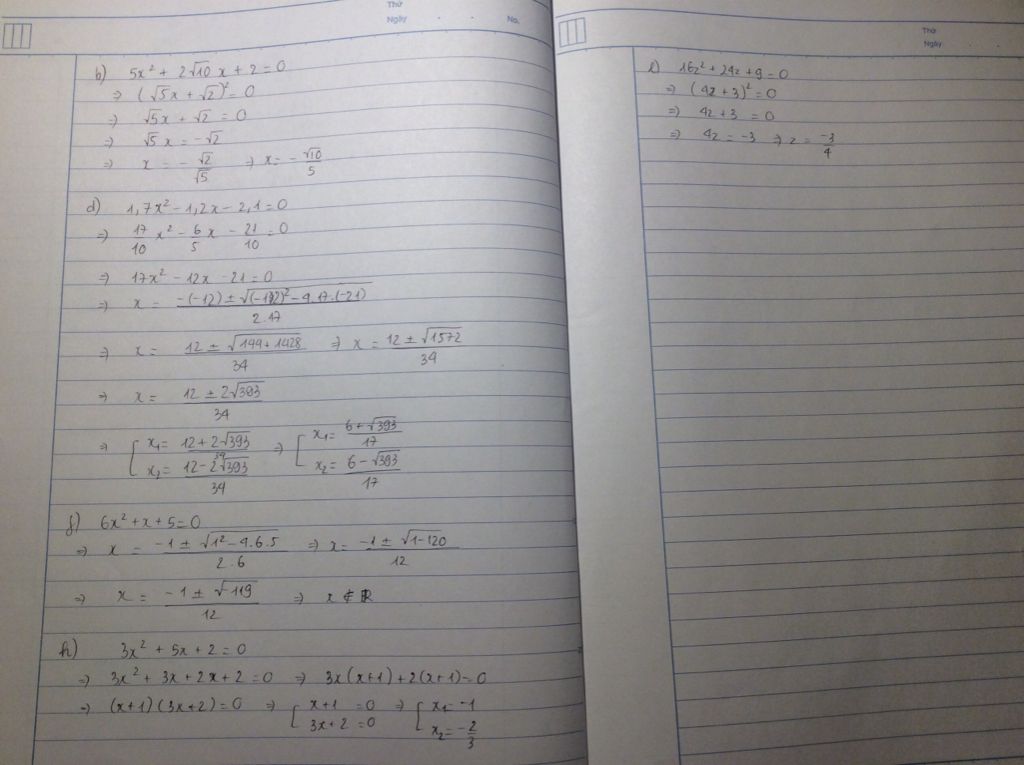 Thứ
Ngày . . No.
b) 5x² + 2√10 x + 2 = 0
⇒ (√5x + √2)² = 0
⇒ √5x + √2 = 0
⇒ √5 x = -√2
⇒ x = - √2/√5 ⇒ x = - √10/5
d) 1,7x² - 1,2x - 2,1 = 0
⇒ 17/10 x² - 6/5 x - 21/10 = 0
⇒ 17x² - 12x - 21 = 0
⇒ x = -(-12) ± √(-12)² - 4.17.(-21) / 2.17
⇒ x = 12 ± √144 + 1428 / 34 ⇒ x = 12 ± √1572 / 34
⇒ x = 12 ± 2√393 / 34
⇒ [ x₁ = 12 + 2√393 / 34 ⇒ [ x₁ = 6 + √393 / 17
x₂ = 12 - 2√393 / 34 x₂ = 6 - √393 / 17
f) 6x² + x + 5 = 0
⇒ x = -1 ± √1² - 4.6.5 / 2.6 ⇒ x = -1 ± √1-120 / 12
⇒ x = -1 ± √-119 / 12 ⇒ x ∉ R
h) 3x² + 5x + 2 = 0
⇒ 3x² + 3x + 2x + 2 = 0 ⇒ 3x(x+1) + 2(x+1) = 0
⇒ (x+1)(3x+2) = 0 ⇒ [ x+1 = 0 ⇒ [ x₁ = -1
3x+2 = 0 x₂ = -2/3
Thứ
Ngày . .
l) 16z² + 24z + 9 = 0
⇒ (4z + 3)² = 0
⇒ 4z + 3 = 0
⇒ 4z = -3 ⇒ z = -3/4